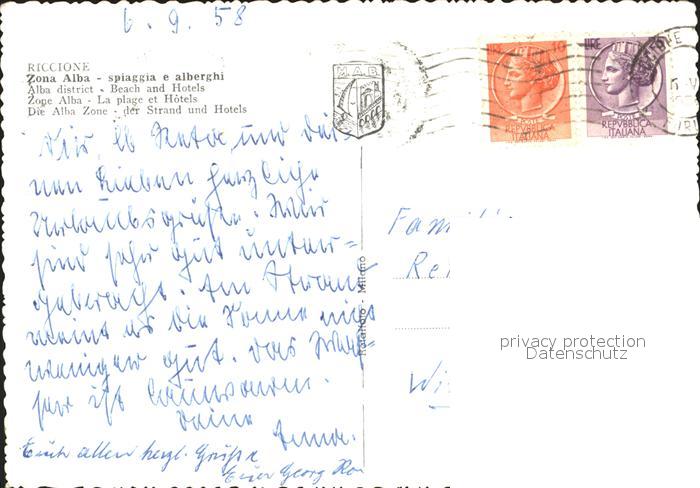 6. 9. 58
RICCIONE
Zona Alba - spiaggia e alberghi
Alba district - Beach and Hotels
Zone Alba - La plage et Hôtels
Die Alba Zone - der Strand und Hotels
M.A.B.
LIRE 10
POSTE
REPVBBLICA
ITALIANA
LIRE
POSTE
REPVBBLICA
ITALIANA
Dir, lb. und dei-
nen Lieben herzliche
Urlaubsgrüße. Wir
sind sehr gut unter-
gebracht. Am Strand
meint es die Sonne nicht
weniger gut. Das Was-
ser ist lauwarm.
Deine
Anna.
Euch allen herzl. Grüße
Euer Georg
Fam
Re
Wi
Milano
privacy protection
Datenschutz